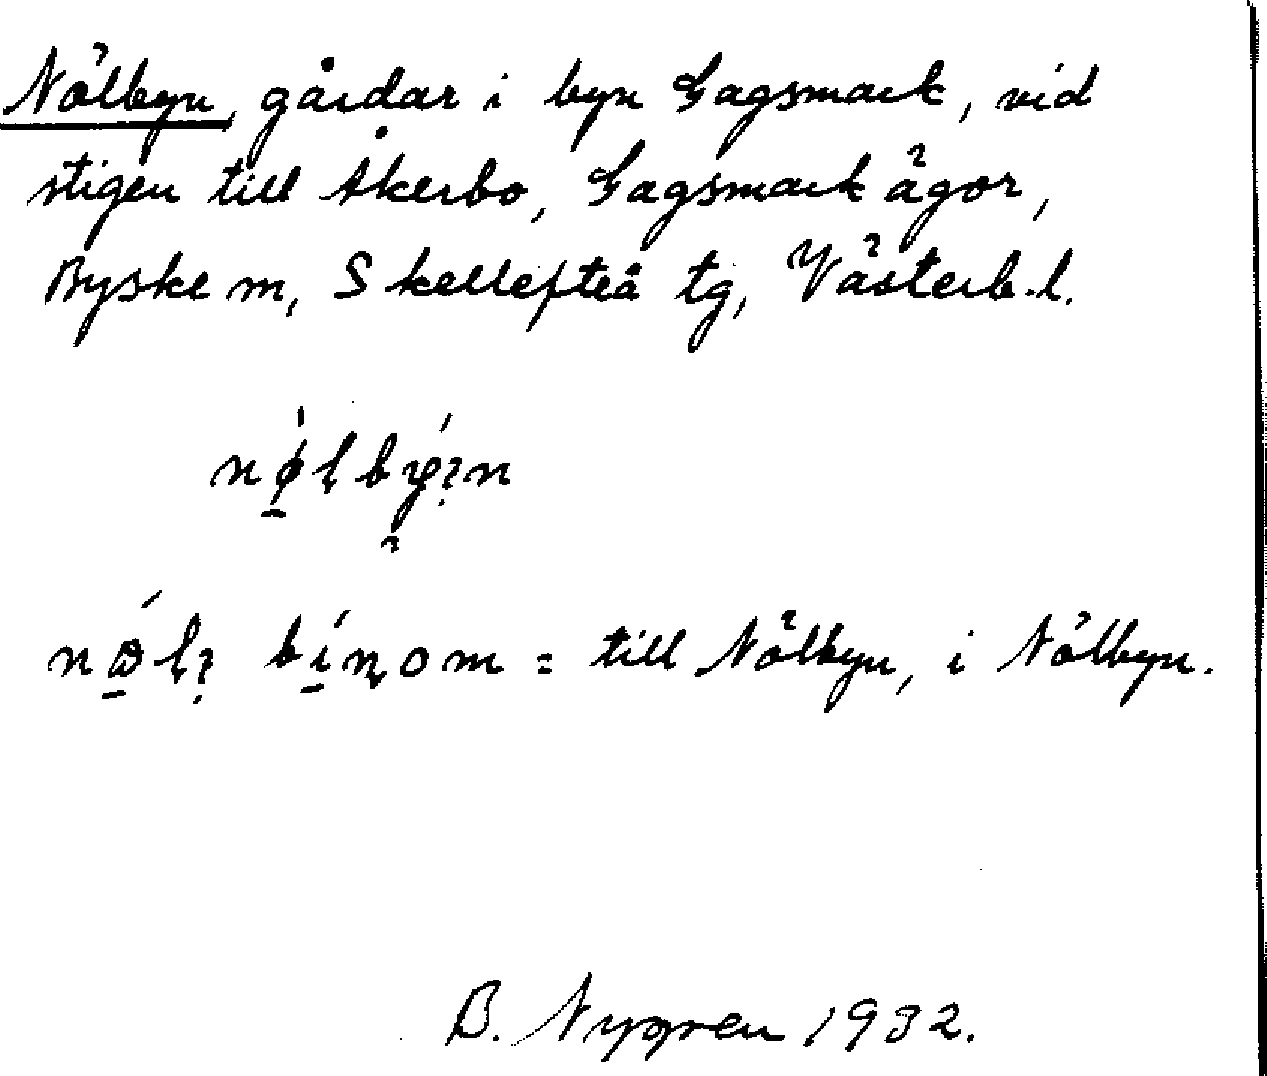 Nölbyn, gårdar i byn Gagsmark, vid
stigen till Åkerbo, Gagsmark ägor,
Byske sn, Skellefteå tg, Västerb. l.
= till Nölbyn, i Nölbyn.
B. Nygren 1932.